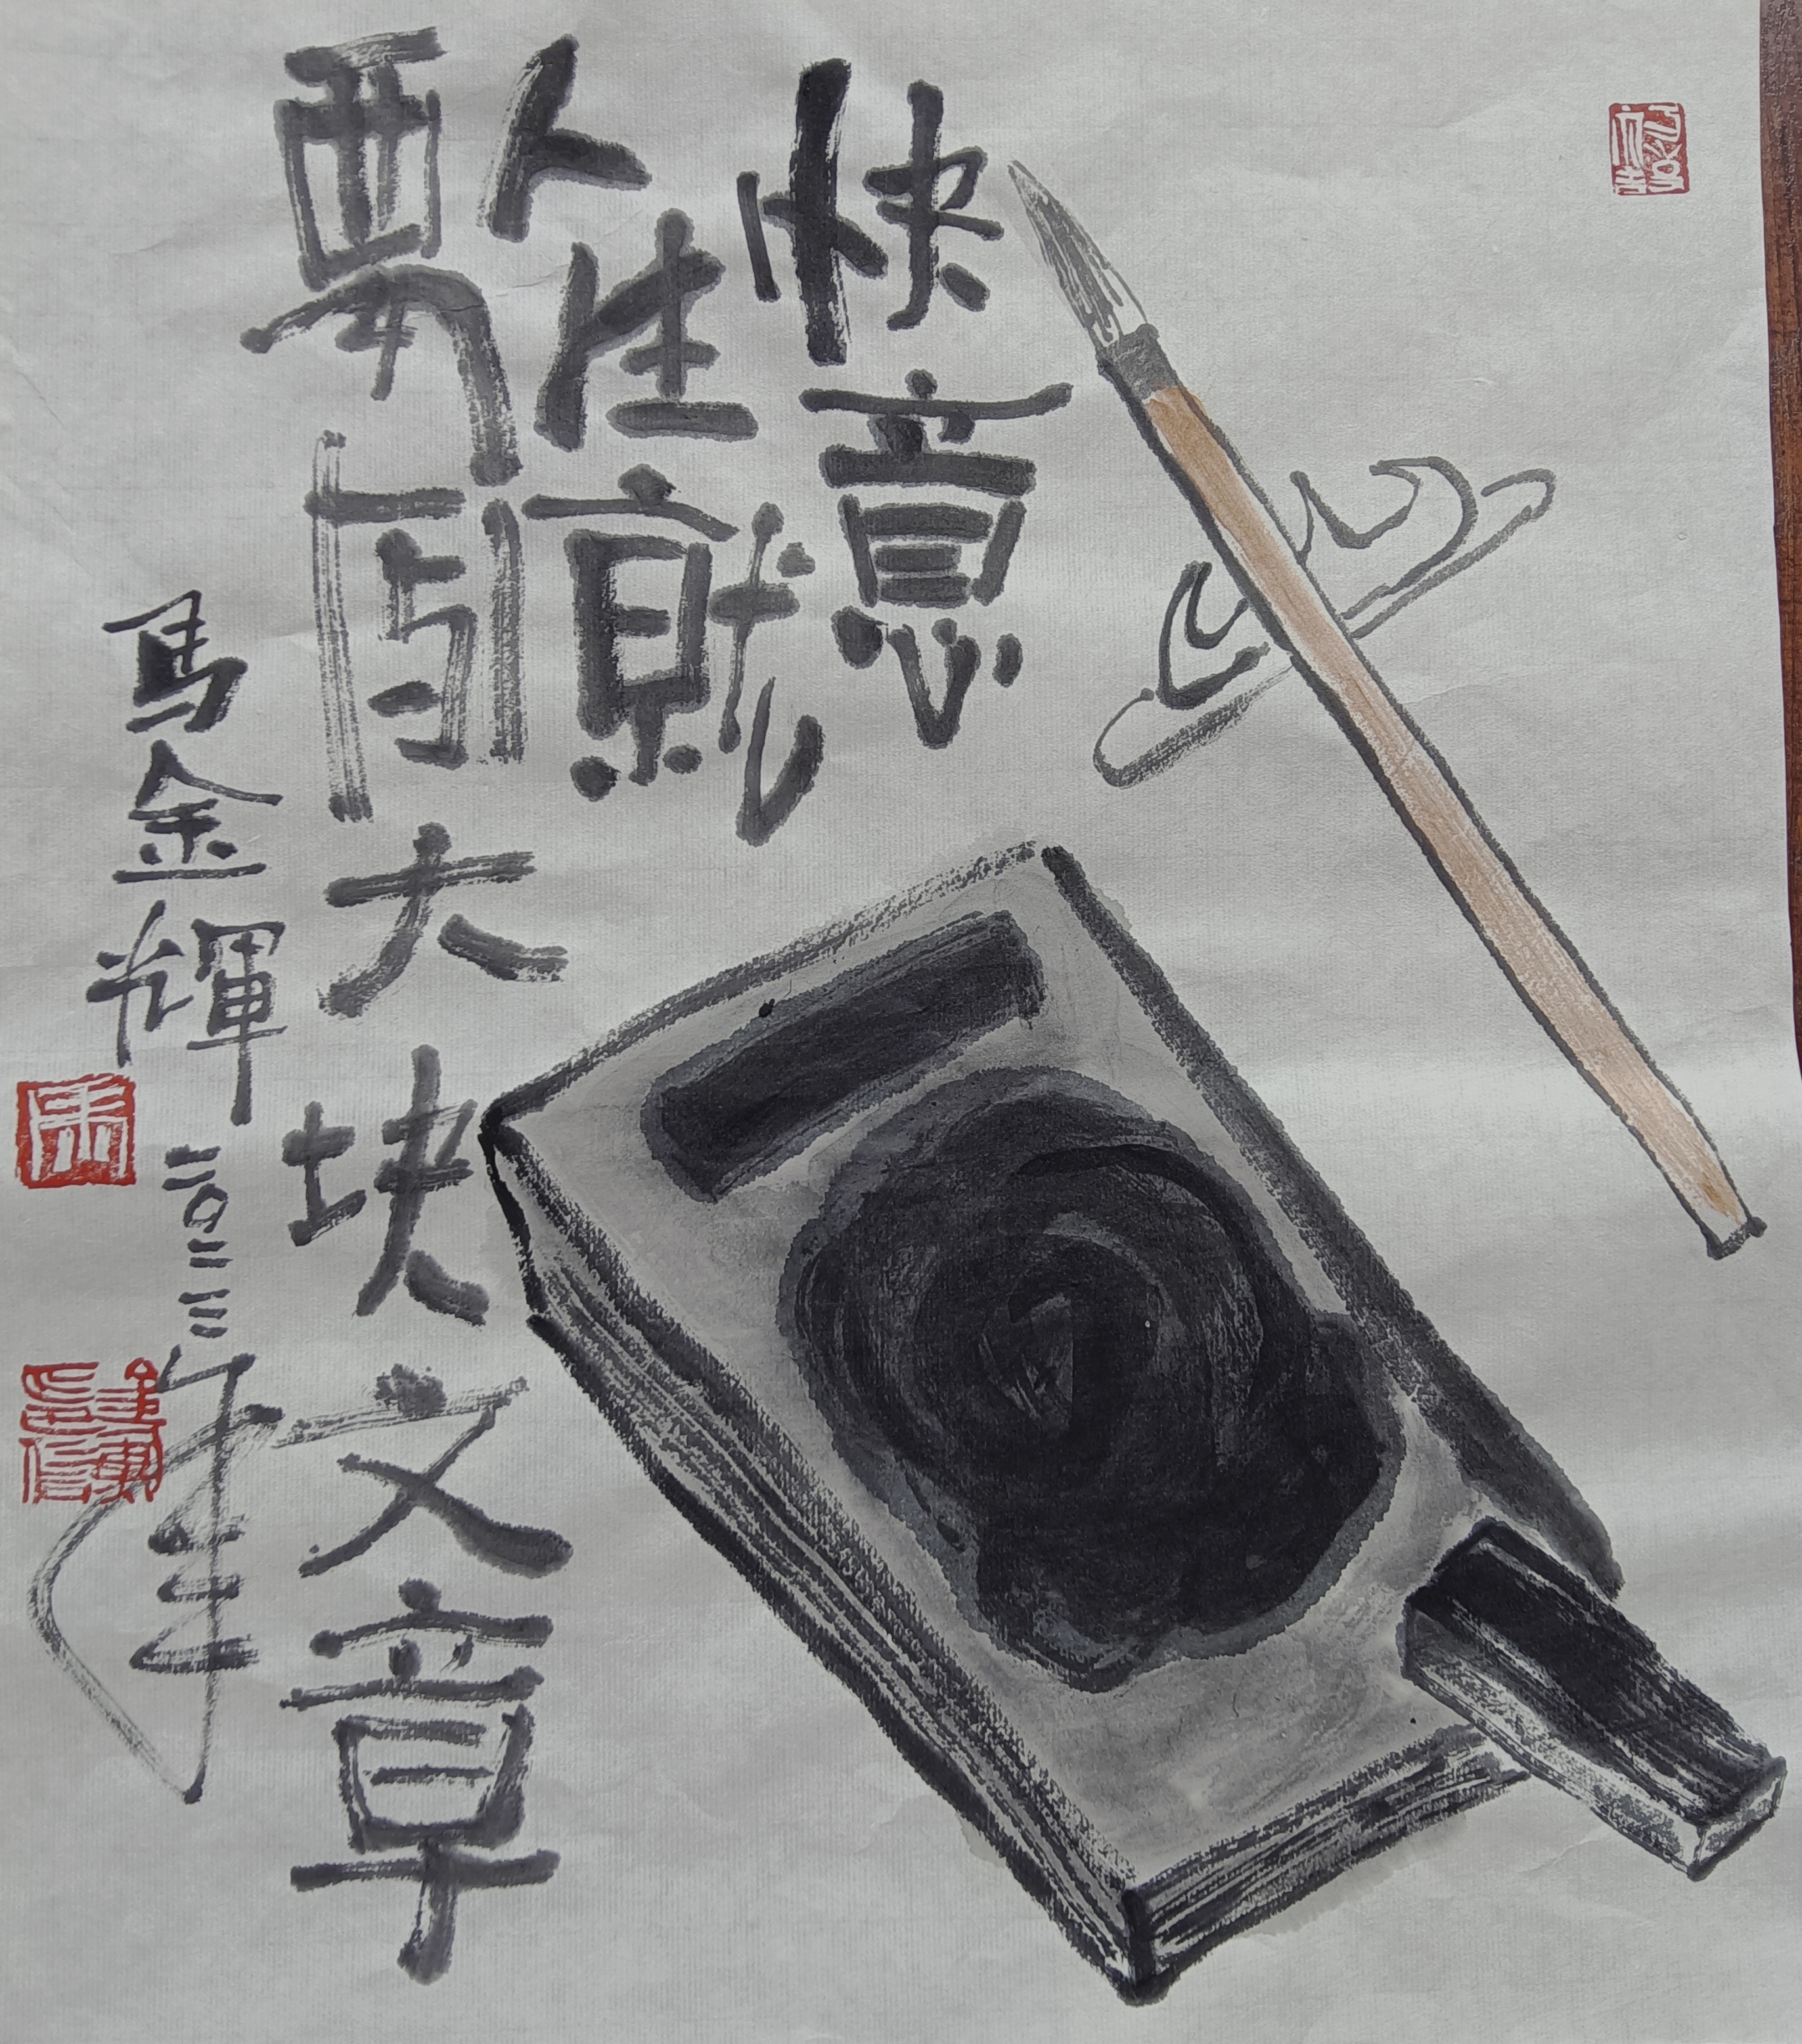 快意
人生就
要写大块文章
馬金輝 二〇二三年